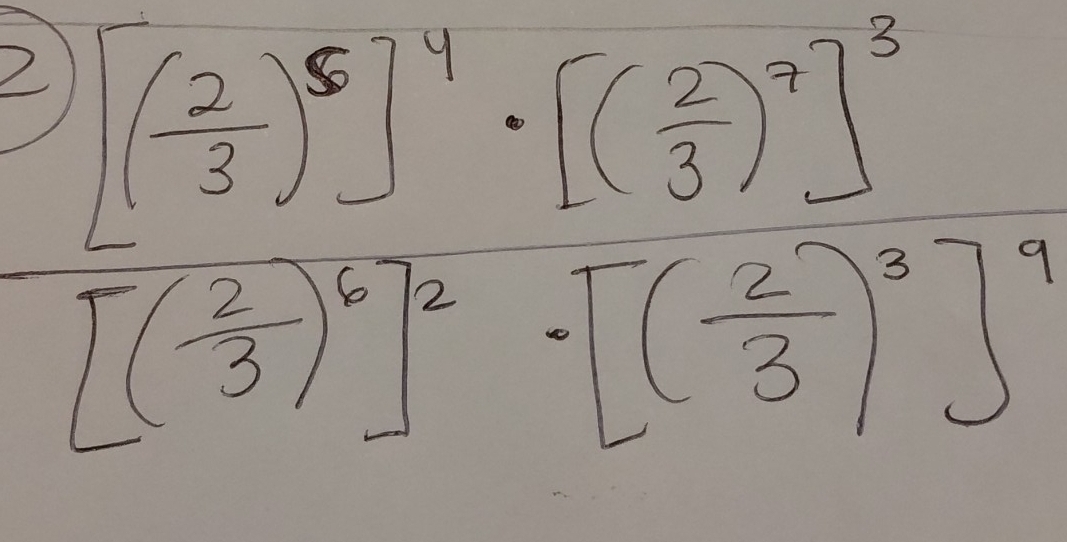 2) [(2/3)^5]^4 · [(2/3)^7]^3
[(2/3)^6]^2 · [(2/3)^3]^9